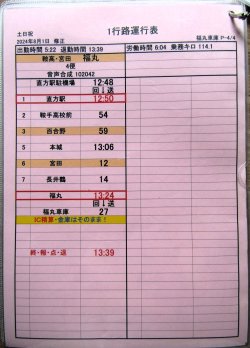 土日祝
2024年8月1日 修正
1行路運行表
福丸車庫 P-4/4
出勤時間 5:22 退勤時間 13:39
労働時間 6:04 乗務キロ 114.1
鞍高・宮田 福丸
4便
音声合成 102042
直方駅駐機場 12:48
回↓送
1 直方駅 12:50
2 鞍手高校前 54
3 百合野 59
5 本城 13:06
6 宮田 12
7 長井鶴 14
福丸 13:24
回↓送
福丸車庫 27
IC精算・金庫はそのまま!
終・報・点・退 13:39